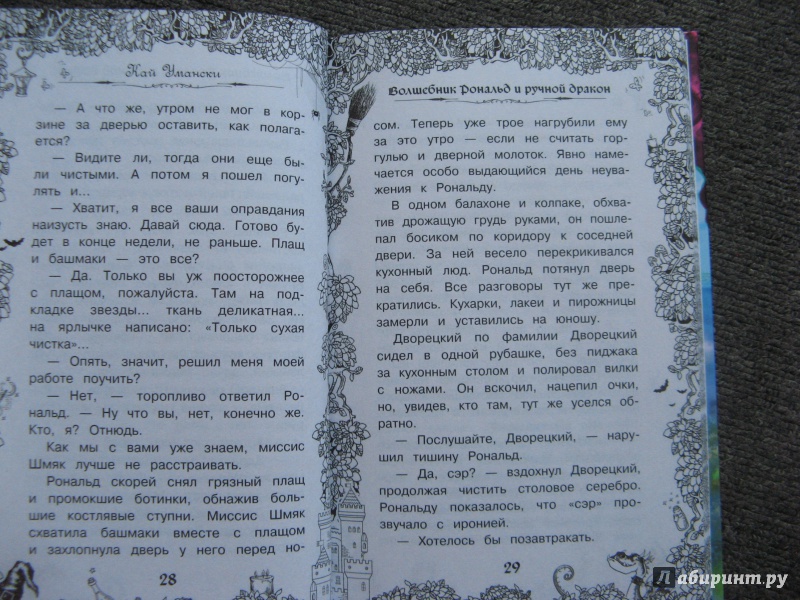 Кай Умански
— А что же, утром не мог в кор-
зине за дверью оставить, как полага-
ется?
— Видите ли, тогда они еще бы-
ли чистыми. А потом я пошел погу-
лять и...
— Хватит, я все ваши оправдания
наизусть знаю. Давай сюда. Готово бу-
дет в конце недели, не раньше. Плащ
и башмаки — это все?
— Да. Только вы уж поосторожнее
с плащом, пожалуйста. Там на под-
кладке звезды... ткань деликатная...
на ярлычке написано: «Только сухая
чистка»...
— Опять, значит, решил меня моей
работе поучить?
— Нет, — торопливо ответил Ро-
нальд. — Ну что вы, нет, конечно же.
Кто, я? Отнюдь.
Как мы с вами уже знаем, миссис
Шмяк лучше не расстраивать.
Рональд скорей снял грязный плащ
и промокшие ботинки, обнажив боль-
шие костлявые ступни. Миссис Шмяк
схватила башмаки вместе с плащом
и захлопнула дверь у него перед но-
28
Волшебник Рональд и ручной дракон
сом. Теперь уже трое нагрубили ему
за это утро — если не считать гор-
гулью и дверной молоток. Явно наме-
чается особо выдающийся день неува-
жения к Рональду.
В одном балахоне и колпаке, обхва-
тив дрожащую грудь руками, он пошле-
пал босиком по коридору к соседней
двери. За ней весело перекрикивался
кухонный люд. Рональд потянул дверь
на себя. Все разговоры тут же пре-
кратились. Кухарки, лакеи и пирожницы
замерли и уставились на юношу.
Дворецкий по фамилии Дворецкий
сидел в одной рубашке, без пиджака
за кухонным столом и полировал вилки
с ножами. Он вскочил, нацепил очки,
но, увидев, кто там, тут же уселся об-
ратно.
— Послушайте, Дворецкий, — нару-
шил тишину Рональд.
— Да, сэр? — вздохнул Дворецкий,
продолжая чистить столовое серебро.
Рональду показалось, что «сэр» про-
звучало с иронией.
— Хотелось бы позавтракать.
29
Лабиринт.ру